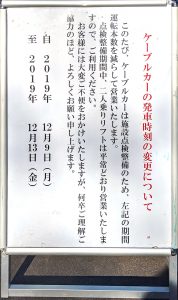 ケーブルカーの発車時刻の変更について
このたび、ケーブルカーは施設点検整備のため、左記の期間
運転本数を減らして営業いたします。
点検整備期間中、二人乗りリフトは平常どおり営業いたしま
すので、ご利用ください。
お客様には大変ご不便をおかけいたしますが、何卒ご理解ご
協力のほど、よろしくお願い申し上げます。
自 2019年 12月9日(月)
至 2019年 12月13日(金)